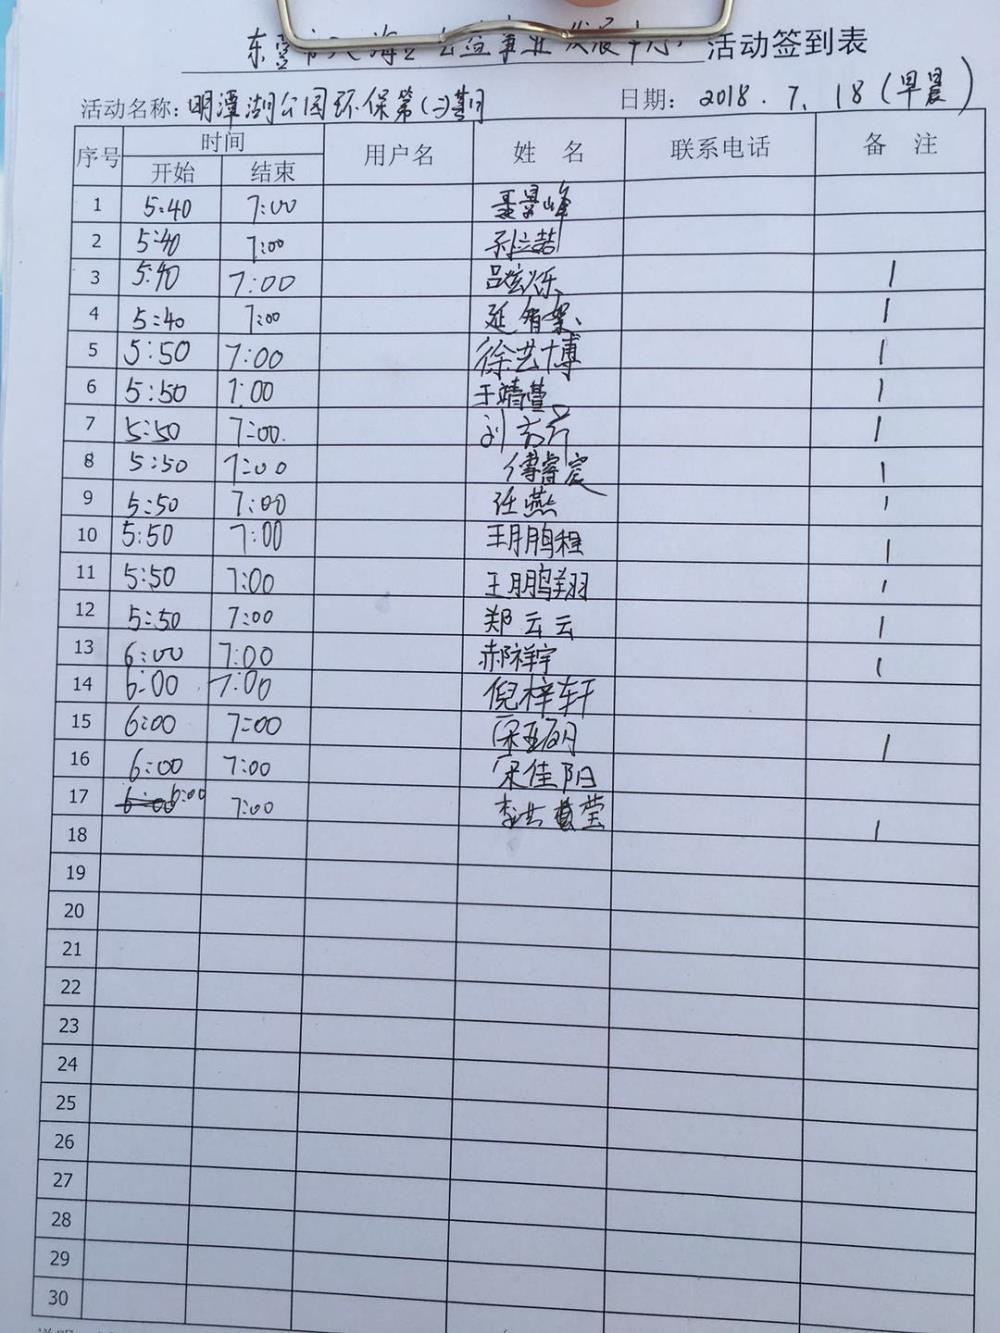 东营市 海 公益事业发展中心 活动签到表
活动名称: 明潭湖公园环保第(二)期 日期: 2018.7.18(早晨)
序号 时间 用户名 姓 名 联系电话 备 注
开始 结束
1 5:40 7:00 聂景峰
2 5:40 7:00 孙立喆
3 5:40 7:00 吕炫烁 1
4 5:40 7:00 延 1
5 5:50 7:00 徐艺博 1
6 5:50 7:00 于靖萱 1
7 5:50 7:00. 刘 1
8 5:50 7:00 傅睿宸 1
9 5:50 7:00 任燕 1
10 5:50 7:00 王鹏程 1
11 5:50 7:00 王鹏翔 1
12 5:50 7:00 郑云云 1
13 6:00 7:00 郝祥宇 1
14 6:00 7:00 倪梓轩
15 6:00 7:00 宋 1
16 6:00 7:00 宋佳阳
17 6:00 7:00 李 莹 1
18
19
20
21
22
23
24
25
26
27
28
29
30